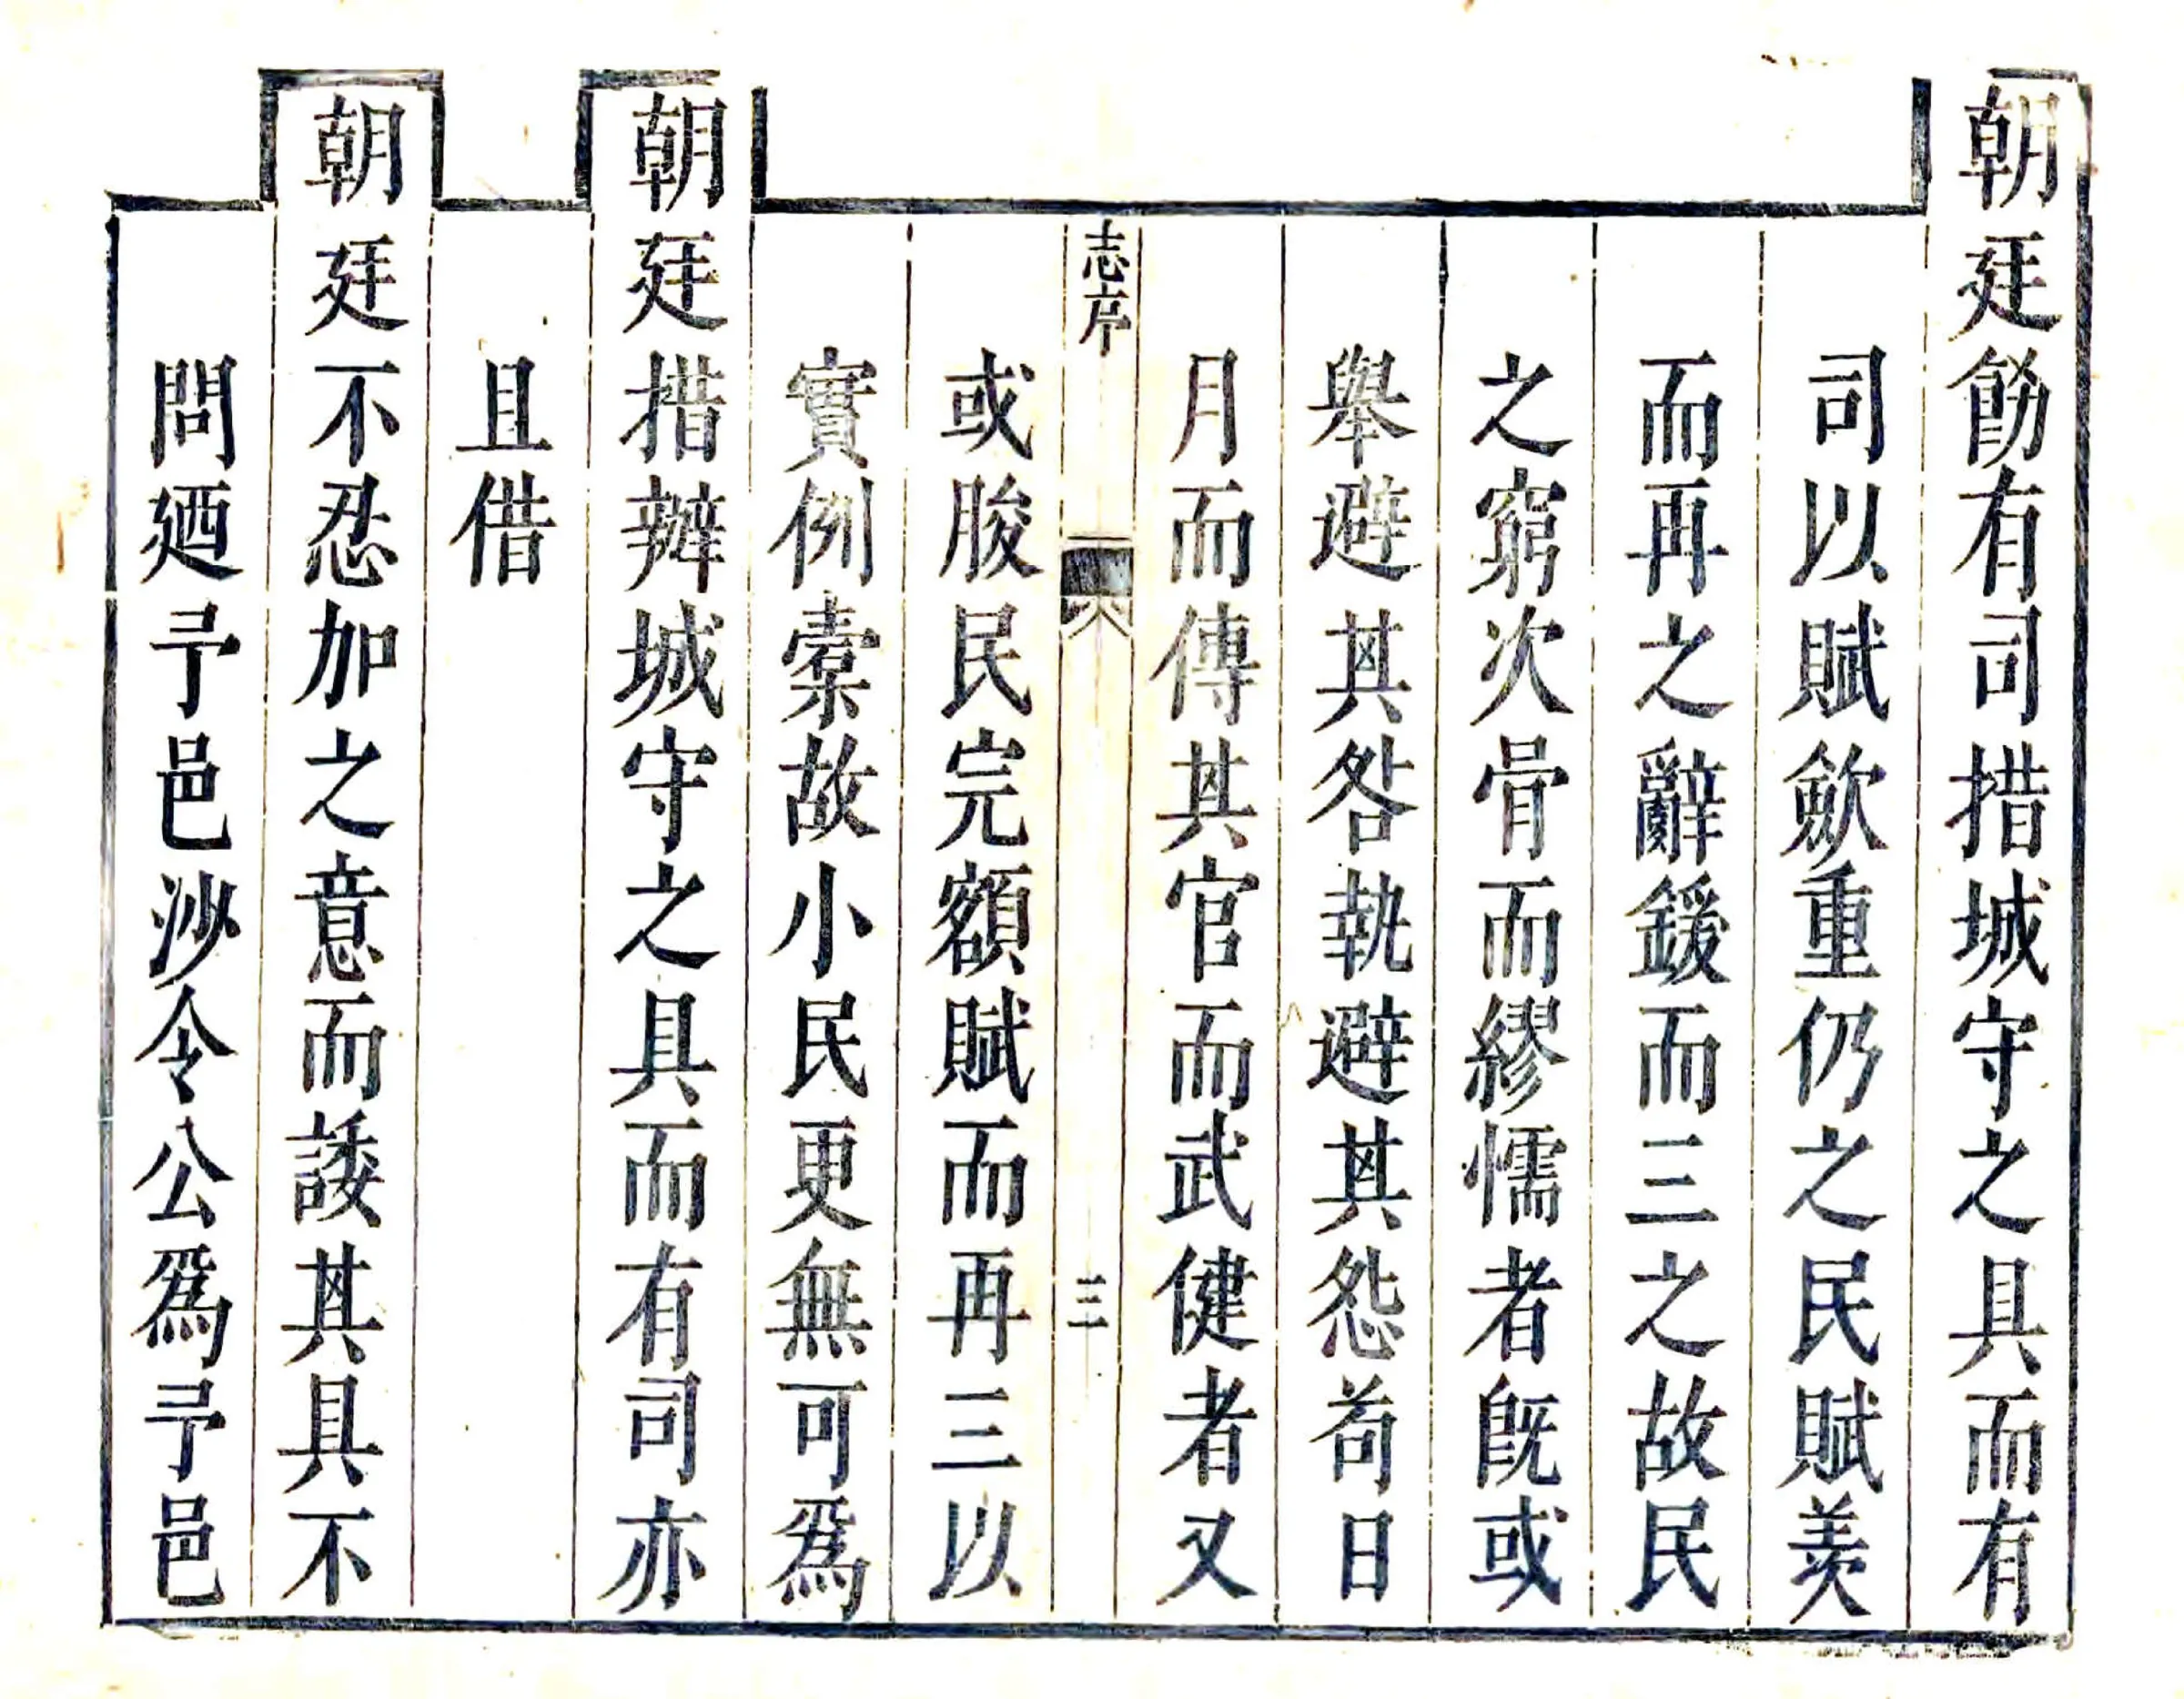 朝廷飭有司措城守之具而有
司以賦歛重仍之民賦羨
而再之辭鍰而三之故民
之窮次骨而繆懦者旣或
舉避其咎執避其怨苟日
月而傳其官而武健者又
志序
三
或朘民完額賦而再三以
實例橐故小民更無可爲
朝廷措辦城守之具而有司亦
且借
朝廷不忍加之意而諉其具不
問廼予邑沙令公爲予邑